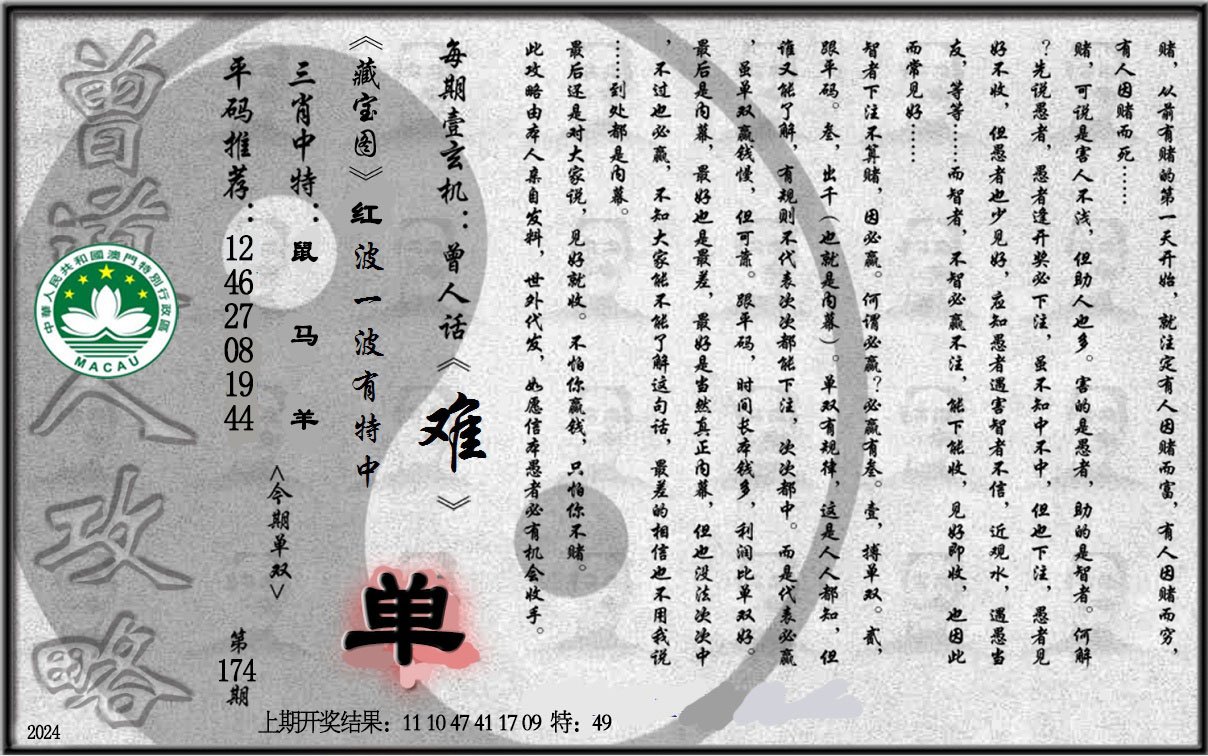 赌，从前有赌的第一天开始，就注定有人因赌而富，有人因赌而穷，
有人因赌而死……
赌，可说是害人不浅，但助人也多。害的是愚者，助的是智者。何解
？先说愚者，愚者逢开奖必下注，虽不知中不中，但也下注，愚者见
好不收，但愚者也少见好，应知愚者遇害智者不信，近观水，遇愚当
友，等等……而智者，不智必赢不注，能下能收，见好即收，也因此
而常见好……
智者下注不算赌，因必赢。何谓必赢？必赢有叁。壹，搏单双。贰，
跟平码。叁，出千（也就是内幕）。单双有规律，这是人人都知，但
谁又能了解，有规则不代表次次都能下注，次次都中。而是代表必赢
，虽单双赢钱慢，但可靠。跟平码，时间长本钱多，利润比单双好。
最后是内幕，最好也是最差，最好是当然真正内幕，但也没法次次中
，不过也必赢，不知大家能不能了解这句话，最差的相信也不用我说
……到处都是内幕。
最后还是对大家说，见好就收。不怕你赢钱，只怕你不赌。
此攻略由本人亲自发料，世外代发，如愿信本愚者必有机会收手。
每期壹玄机：曾人话《难》
《藏宝图》红波一波有特中
三肖中特：鼠 马 羊
<今期单双>
单
平码推荐：12 46 27 08 19 44
第174期
曾道人攻略
中華人民共和國澳門特別行政區
MACAU
上期开奖结果：11 10 47 41 17 09 特：49
2024